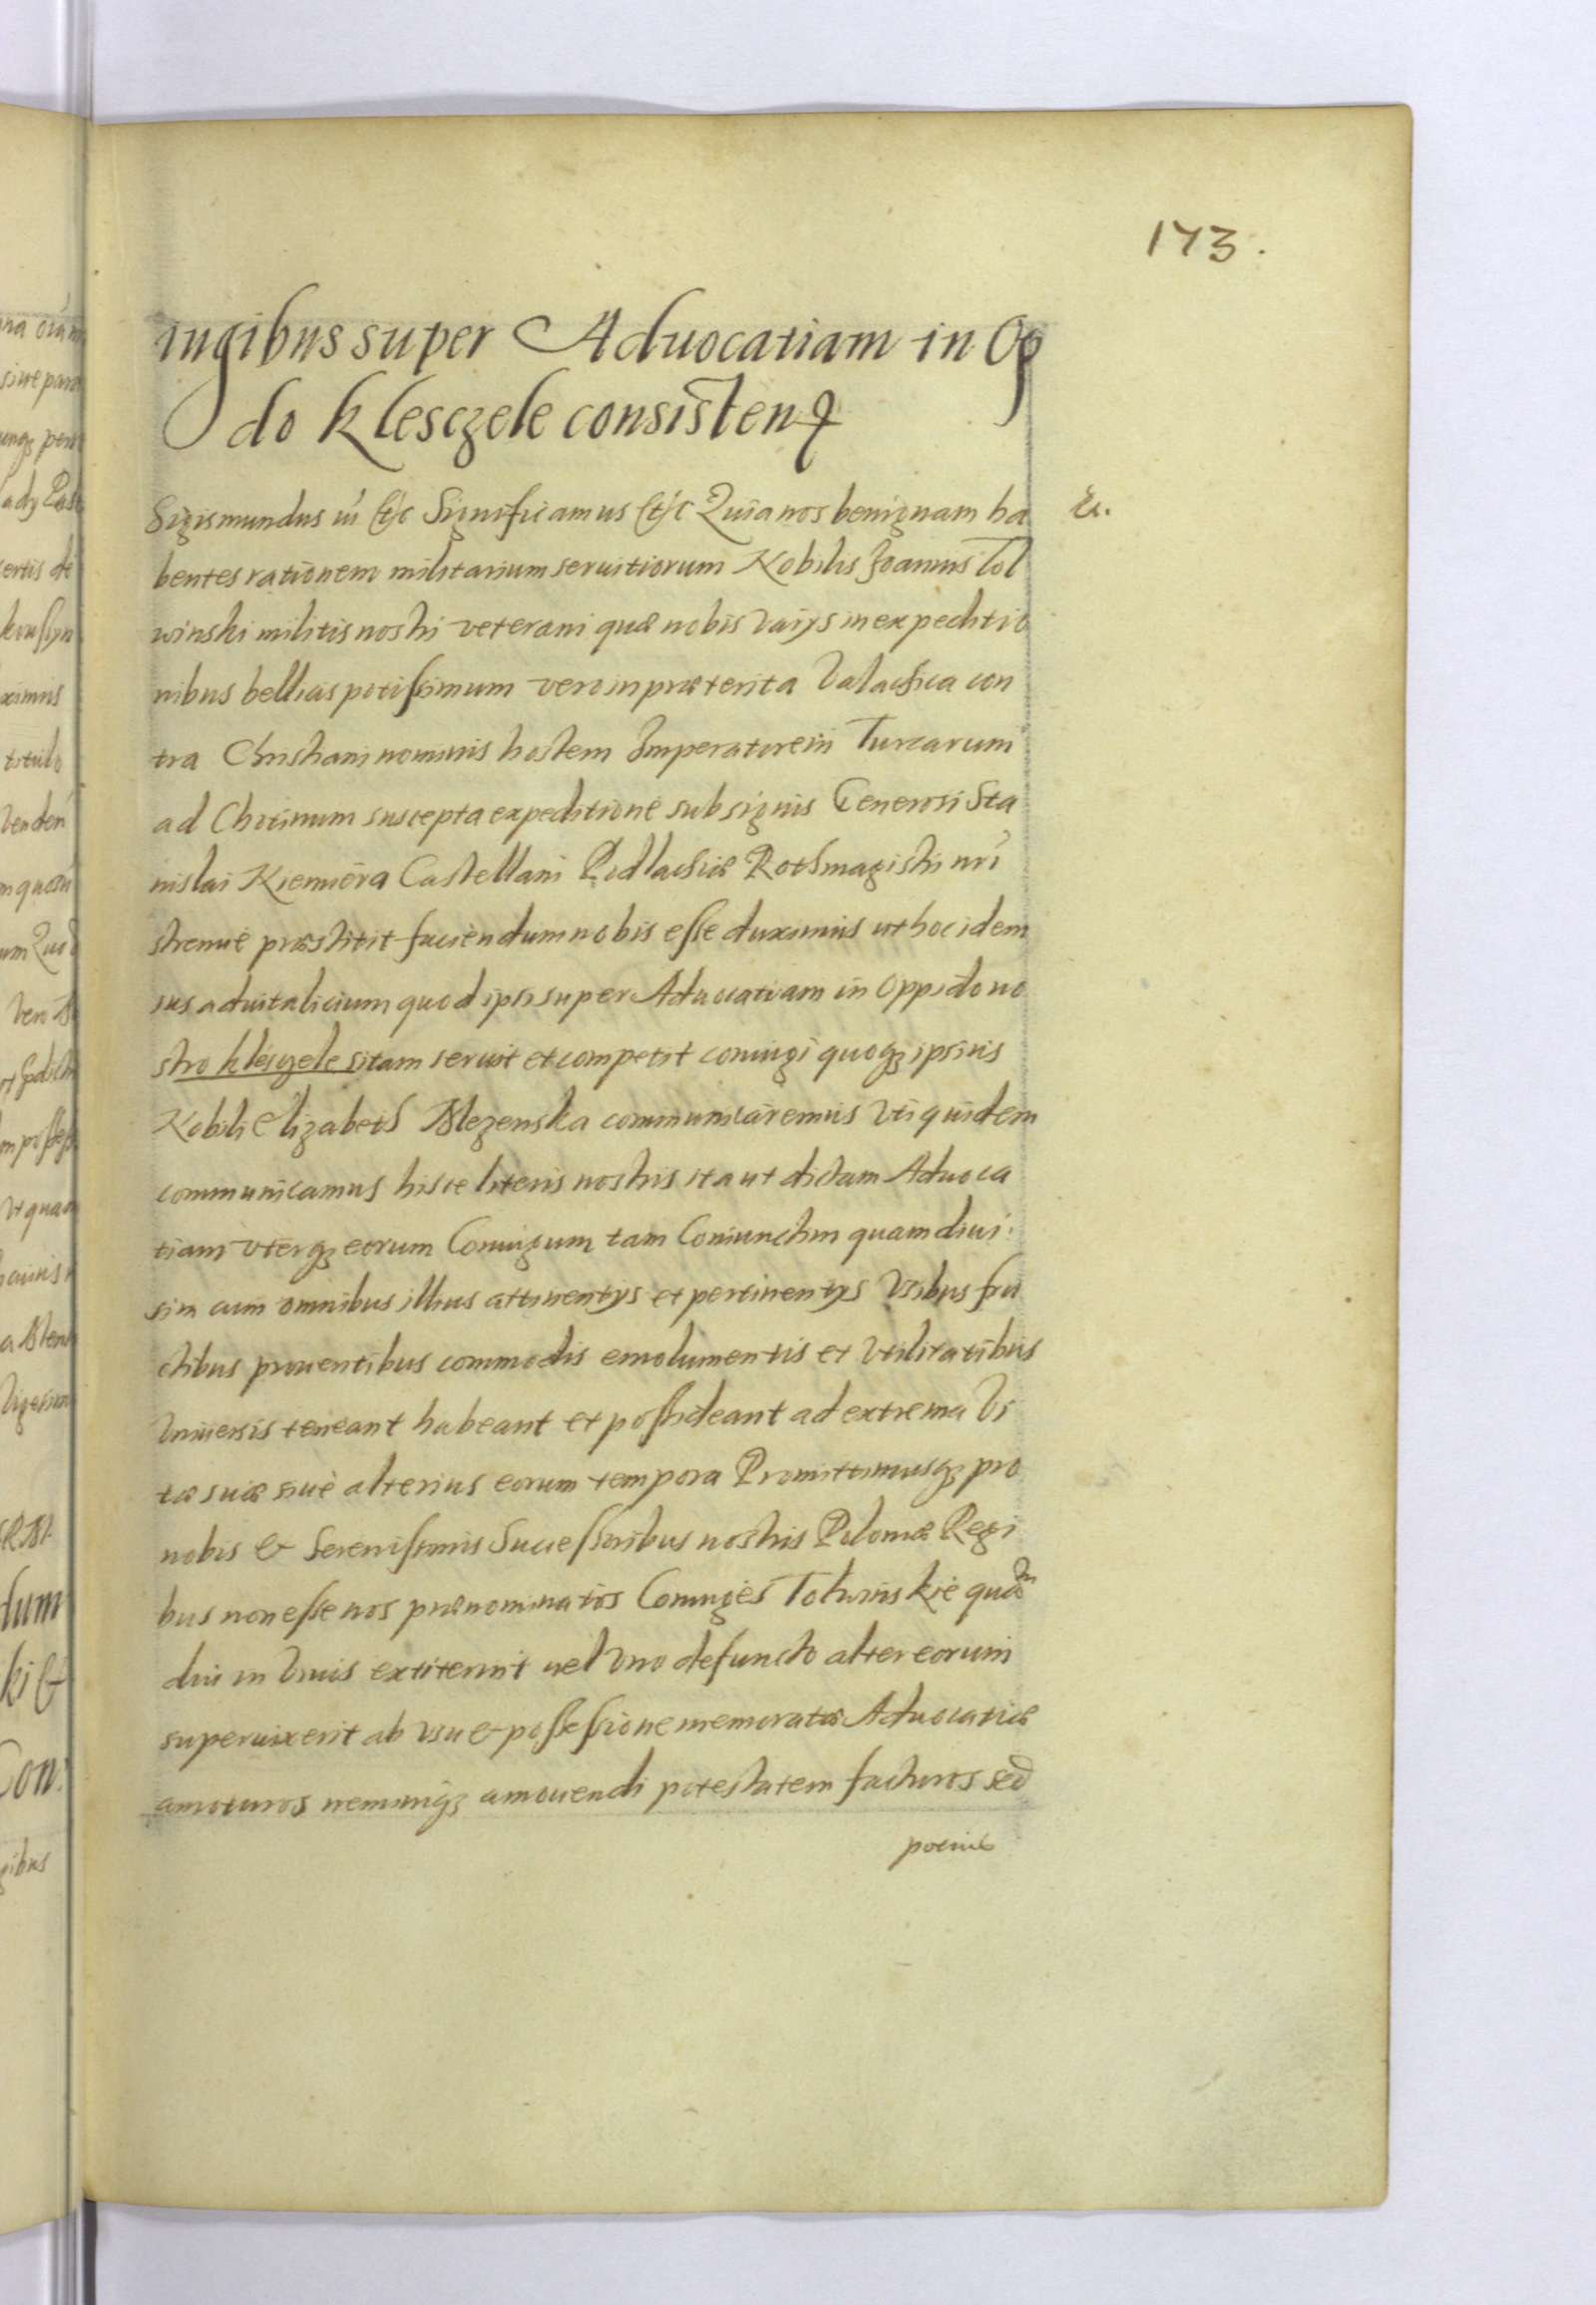 173.
iugibus super Aduocatiam in Op
do Klesczele consisten
Sigismundus iii etc Significamus etc Quia nos benignam ha
bentes rationem militarium seruitiorum Nobilis Joannis Tol
winski militis nostri veterani quæ nobis varijs in expeditio
nibus bellicis potissimum vero in præterita Valachica con
tra Christiani nominis hostem Imperatorem Turcarum
ad Chotimum suscepta expeditione sub signis Generosi Sta
nislai Niemiera Castellani Podlachiæ Rothmagistri nri
strenue præstitit faciendum nobis esse duximus ut hoc idem
ius aduitalicium quod ipsi super Aduocatiam in oppido no
stro klesczele sitam seruit et competit coniugi quoq ipsius
Nobili Elizabeth Mezenska communicaremus Vti quidem
communicamus hisce literis nostris ita ut dictam Aduoca
tiam vterq eorum Coniugum tam Coniunctim quam diui
sim cum omnibus illius attinentijs et pertinentijs Vsibus fru
ctibus prouentibus commodis emolumentis et Vtilitatibus
Vniuersis teneant habeant et possideant ad extrema Vi
tæ suæ siue alterius eorum tempora Promittimusq pro
nobis & Serenissimis Successoribus nostris Poloniæ Regi
bus non esse nos prænominatos Coniuges Tolwinskie quam
diu in Viuis extiterint uel Vno defuncto alter eorum
superuixerit ab vsu & possessione memoratæ Aduocatiæ
amoturos neminiq amouendi potestatem facturos sed